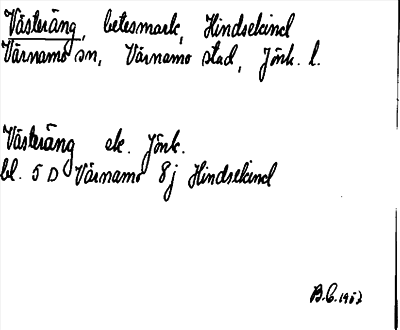 Västeräng, betesmark, Hindsekind
Värnamo sn, Värnamo stad, Jönk. l.
Västeräng ek. Jönk.
bl. 5 D Värnamo 8j Hindsekind